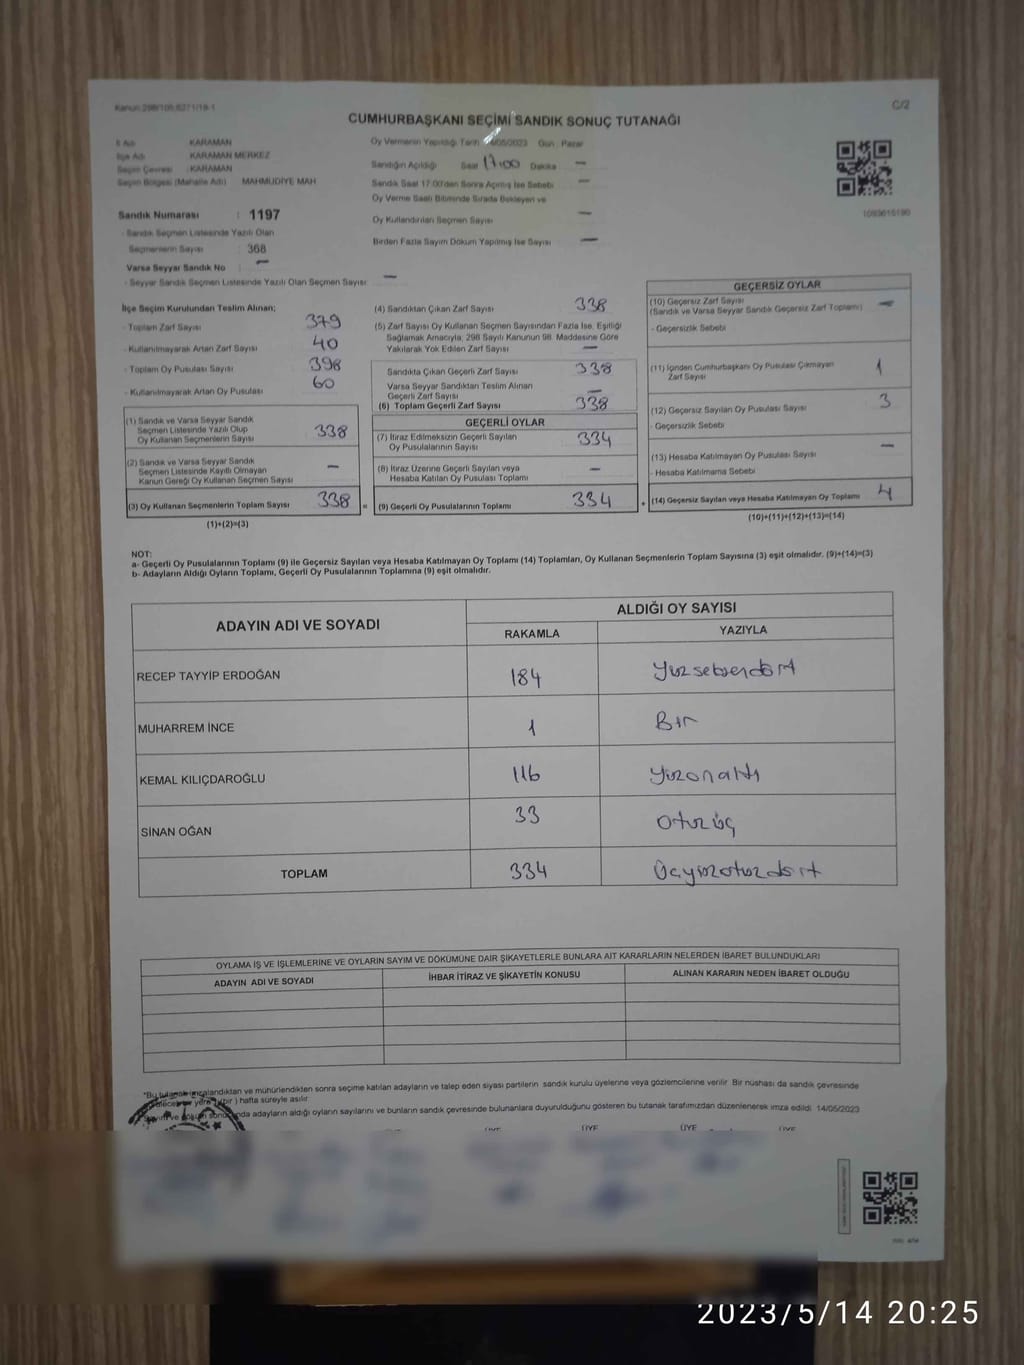 Kanun:298/105;6271/19-1
C/2
CUMHURBAŞKANI SEÇİMİ SANDIK SONUÇ TUTANAĞI
İl Adı KARAMAN
İlçe Adı KARAMAN MERKEZ
Seçim Çevresi :KARAMAN
Seçim Bölgesi (Mahalle Adı) MAHMUDİYE MAH
Sandık Numarası : 1197
- Sandık Seçmen Listesinde Yazılı Olan
Seçmenlerin Sayısı 368
Varsa Seyyar Sandık No : —
- Seyyar Sandık Seçmen Listesinde Yazılı Olan Seçmen Sayısı: —
Oy Vermenin Yapıldığı Tarih /05/2023 Gün : Pazar
Sandığın Açıldığı Saat 17:00 Dakika —
Sandık Saat 17:00'den Sonra Açılmış İse Sebebi —
Oy Verme Saati Bitiminde Sırada Bekleyen ve
Oy Kullandırılan Seçmen Sayısı —
Birden Fazla Sayım Döküm Yapılmış İse Sayısı —
1093615190
İlçe Seçim Kurulundan Teslim Alınan;
- Toplam Zarf Sayısı 379
- Kullanılmayarak Artan Zarf Sayısı 40
- Toplam Oy Pusulası Sayısı 398
- Kullanılmayarak Artan Oy Pusulası 60
(1) Sandık ve Varsa Seyyar Sandık
Seçmen Listesinde Yazılı Olup
Oy Kullanan Seçmenlerin Sayısı 338
(2) Sandık ve Varsa Seyyar Sandık
Seçmen Listesinde Kayıtlı Olmayan
Kanun Gereği Oy Kullanan Seçmen Sayısı —
(3) Oy Kullanan Seçmenlerin Toplam Sayısı 338
(1)+(2)=(3)
=
(4) Sandıktan Çıkan Zarf Sayısı 338
(5) Zarf Sayısı Oy Kullanan Seçmen Sayısından Fazla İse, Eşitliği
Sağlamak Amacıyla; 298 Sayılı Kanunun 98. Maddesine Göre
Yakılarak Yok Edilen Zarf Sayısı —
Sandıkta Çıkan Geçerli Zarf Sayısı 338
Varsa Seyyar Sandıktan Teslim Alınan
Geçerli Zarf Sayısı —
(6) Toplam Geçerli Zarf Sayısı 338
GEÇERLİ OYLAR
(7) İtiraz Edilmeksizin Geçerli Sayılan
Oy Pusulalarının Sayısı 334
(8) İtiraz Üzerine Geçerli Sayılan veya
Hesaba Katılan Oy Pusulası Toplamı —
(9) Geçerli Oy Pusulalarının Toplamı 334
+
GEÇERSİZ OYLAR
(10) Geçersiz Zarf Sayısı
(Sandık ve Varsa Seyyar Sandık Geçersiz Zarf Toplamı) —
- Geçersizlik Sebebi
(11) İçinden Cumhurbaşkanı Oy Pusulası Çıkmayan
Zarf Sayısı 1
(12) Geçersiz Sayılan Oy Pusulası Sayısı 3
- Geçersizlik Sebebi
(13) Hesaba Katılmayan Oy Pusulası Sayısı —
- Hesaba Katılmama Sebebi
(14) Geçersiz Sayılan veya Hesaba Katılmayan Oy Toplamı 4
(10)+(11)+(12)+(13)=(14)
NOT:
a- Geçerli Oy Pusulalarının Toplamı (9) ile Geçersiz Sayılan veya Hesaba Katılmayan Oy Toplamı (14) Toplamları, Oy Kullanan Seçmenlerin Toplam Sayısına (3) eşit olmalıdır. (9)+(14)=(3)
b- Adayların Aldığı Oyların Toplamı, Geçerli Oy Pusulalarının Toplamına (9) eşit olmalıdır.
ADAYIN ADI VE SOYADI
ALDIĞI OY SAYISI
RAKAMLA YAZIYLA
RECEP TAYYİP ERDOĞAN 184 Yüzseksendört
MUHARREM İNCE 1 Bir
KEMAL KILIÇDAROĞLU 116 yüzonaltı
SİNAN OĞAN 33 otuzüç
TOPLAM 334 Üçyüzotuzdört
OYLAMA İŞ VE İŞLEMLERİNE VE OYLARIN SAYIM VE DÖKÜMÜNE DAİR ŞİKAYETLERLE BUNLARA AİT KARARLARIN NELERDEN İBARET BULUNDUKLARI
ADAYIN ADI VE SOYADI İHBAR İTİRAZ VE ŞİKAYETİN KONUSU ALINAN KARARIN NEDEN İBARET OLDUĞU
*Bu tutanak imzalandıktan ve mühürlendikten sonra seçime katılan adayların ve talep eden siyasi partilerin sandık kurulu üyelerine veya gözlemcilerine verilir Bir nüshası da sandık çevresinde
yere (bir ) hafta süreyle asılır
ve adayların aldığı oyların sayılarını ve bunların sandık çevresinde bulunanlara duyurulduğunu gösteren bu tutanak tarafımızdan düzenlenerek imza edildi. 14/05/2023
ÜYE ÜYE ÜYE ÜYE
2023/5/14 20:25